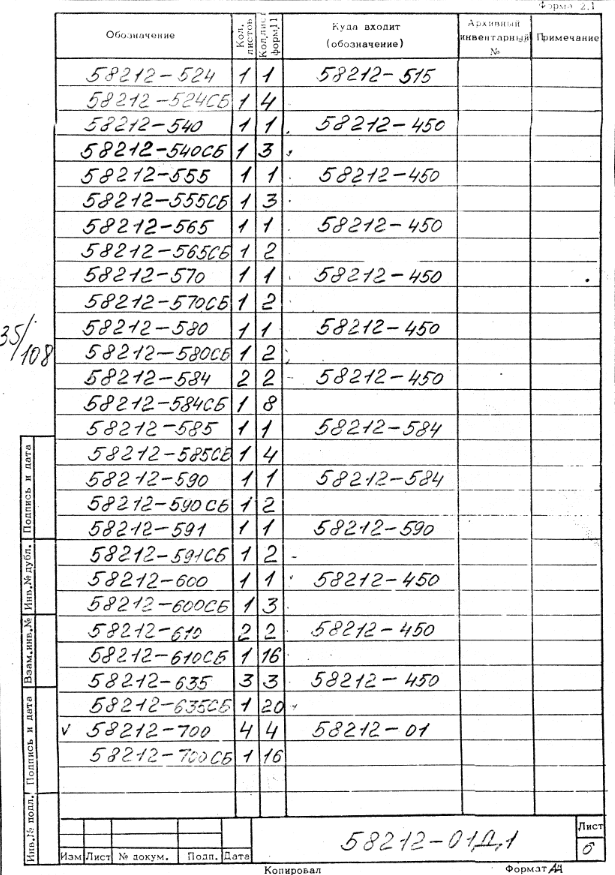 Форма 2.1
Обозначение Кол. листов Кол. лист. форм. 11 Куда входит (обозначение) Архивный инвентарный № Примечание
58212-524 1 1 58212-515
58212-524СБ 1 4
58212-540 1 1 58212-450
58212-540СБ 1 3
58212-555 1 1 58212-450
58212-555СБ 1 3
58212-565 1 1 58212-450
58212-565СБ 1 2
58212-570 1 1 58212-450
58212-570СБ 1 2
58212-580 1 1 58212-450
35/108
58212-580СБ 1 2
58212-584 2 2 58212-450
58212-584СБ 1 8
58212-585 1 1 58212-584
58212-585СБ 1 4
58212-590 1 1 58212-584
58212-590СБ 1 2
58212-591 1 1 58212-590
58212-591СБ 1 2
58212-600 1 1 58212-450
58212-600СБ 1 3
58212-610 2 2 58212-450
58212-610СБ 1 16
58212-635 3 3 58212-450
58212-635СБ 1 20
V 58212-700 4 4 58212-01
58212-700СБ 1 16
Подпись и дата
Инв.№ дубл.
Взам.инв.№
Подпись и дата
Инв.№ подл.
58212-01Д1
Лист
6
Изм Лист № докум. Подп. Дата
Копировал Формат А4